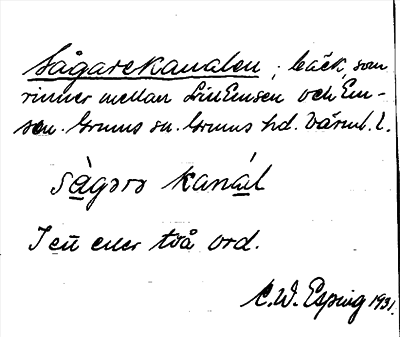 Sågarekanalen, bäck, som
rinner mellan LillEmsen och Em-
sen. Grums sn. Grums hd. Värml. l.
sågərə kanál
I ett eller två ord.
C.W. Esping 1931.